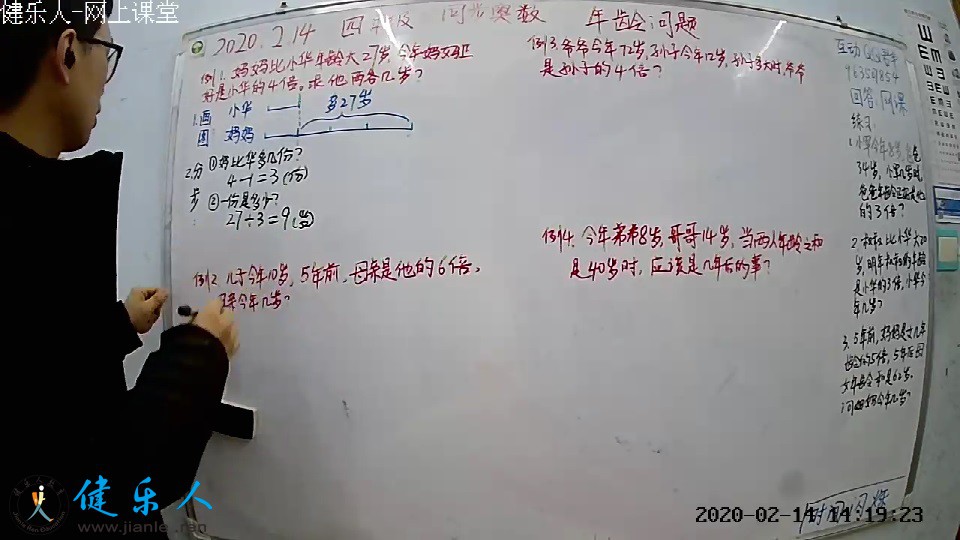 健乐人-网上课堂
2020.2.14 四年级 同步奥数 年龄问题
例1.妈妈比小华年龄大27岁,今年妈妈正
好是小华的4倍。求他两各几岁?
1.画 小华 多27岁
图 妈妈
2.分 ①妈比华多几份?
4-1=3(份)
步 ②一份是多少?
27÷3=9(岁)
例2.儿子今年10岁,5年前,母亲是他的6倍,
母亲今年几岁?
例3.爷爷今年72岁,孙子今年12岁,孙子多大时,爷爷
是孙子的4倍?
例4.今年弟弟8岁,哥哥14岁,当两人年龄之和
是40岁时,应该是几年后的事?
互动QQ
回答:网课
练习:
34岁,
的3倍?
2.叔叔比小华大20
岁,明年
是小华的3倍,小华今
年几岁?
3.5年前,妈妈是女儿年
龄的5倍,5年后母
女年龄和是62岁,
问妈妈今年几岁?
健乐人
www.jianle.ren
2020-02-14 14:19:23